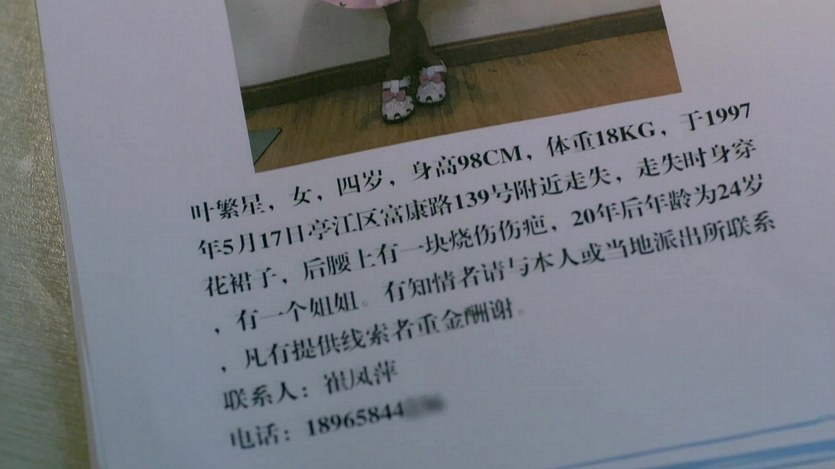 叶繁星，女，四岁，身高98CM，体重18KG，于1997
年5月17日亭江区富康路139号附近走失，走失时身穿
花裙子，后腰上有一块烧伤伤疤，20年后年龄为24岁
，有一个姐姐。有知情者请与本人或当地派出所联系
，凡有提供线索者重金酬谢。
联系人：崔凤萍
电话：18965844